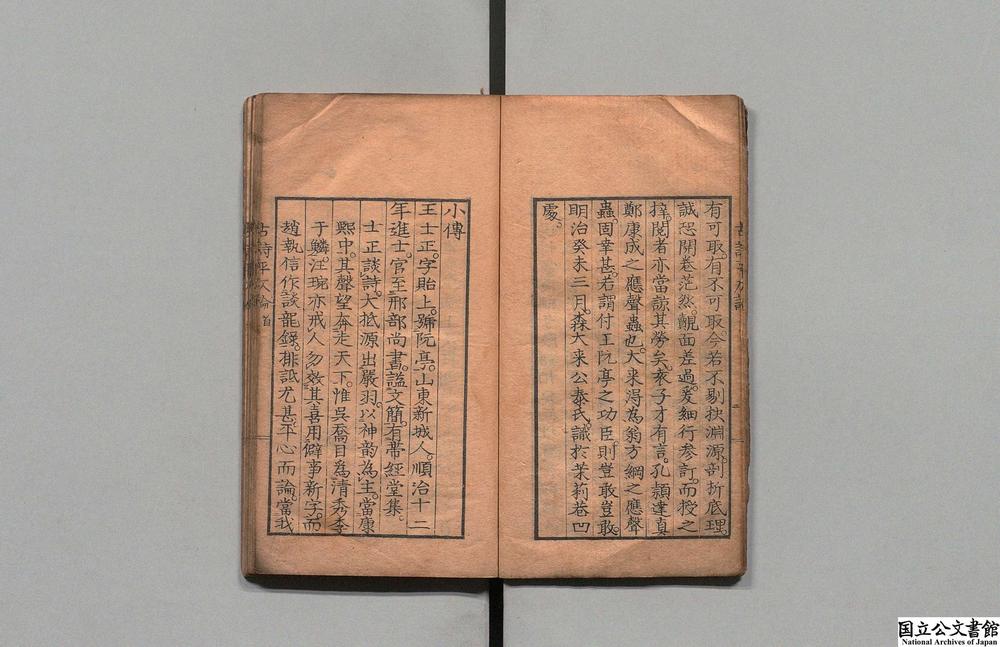 有可取。有不可取。今若不剔抉淵源。剖折底理。
誠恐開卷茫然。覿面差過。爰細行參訂。而授之
梓。閱者亦當諒其勞矣。袁子才有言。孔穎達真
鄭康成之應聲蟲也。大來得為翁方綱之應聲
蟲。固幸甚。若謂付王阮亭之功臣。則豈敢豈敢。
明治癸未三月。森大來公泰氏。識於茉莉巷凹
處。
小傳
王士正。字貽上。號阮亭。山東新城人。順治十二
年進士。官至刑部尚書。諡文簡。有帶經堂集。
士正談詩。大抵源出嚴羽。以神韵為主。當康
熙中。其聲望奔走天下。惟吳喬目為清秀李
于鱗。汪琬亦戒人勿效其喜用僻事新字。而
趙執信作談龍錄。排詆尤甚。平心而論。當我
古詩平仄論 首
国立公文書館
National Archives of Japan